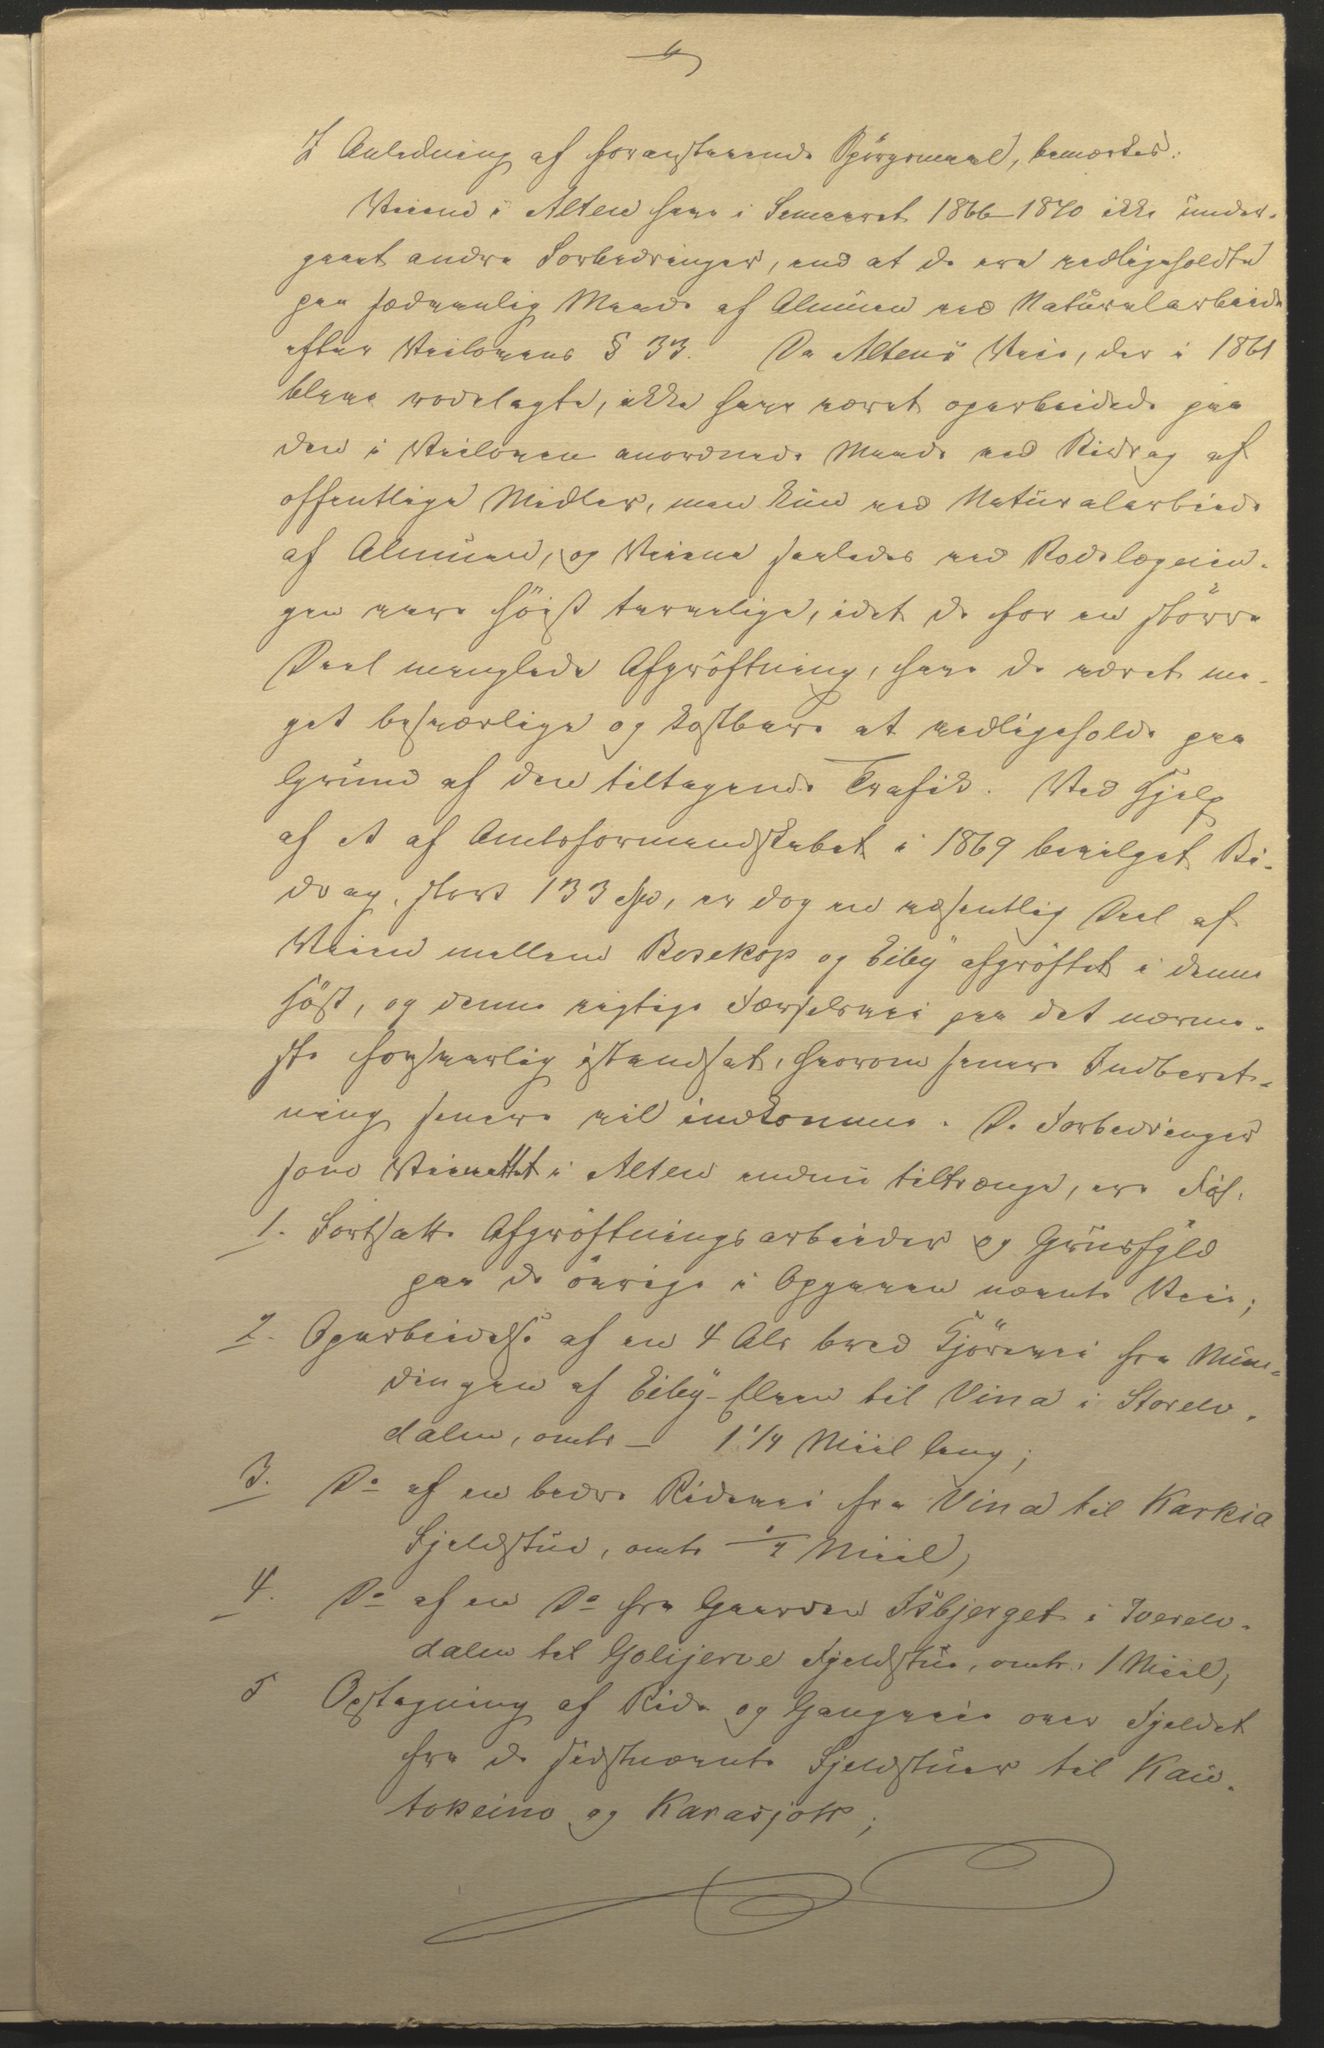 I Anledning af foranstaaende Spörgsmaal, bemærkes:
Veiene i Alten have i Femaaret 1866–1870 ikke under-
gaaet andre Forbedringer, end at de ere vedligeholdte
paa sædvanlig Maade af Almuen ved Naturalarbeide
efter Veilovens § 33. Da Altens Veie, der i 1861
bleve rodelagte, ikke have været oparbeidede paa
den i Veiloven anordnede Maade ved Bidrag af
offentlige Midler, men kun ved Naturalarbeide
af Almuen, og Veiene saaledes ved Rodelægnin-
gen vare höist tarvelige, idet de for en större
Deel manglede Afgröftning, have de været me-
get besværlige og kostbare at vedligeholde paa
Grund af den tiltagende Trafik. Ved Hjelp
af et af Amtsformandskabet i 1869 bevilget Bi-
drag, stort 133 Spd, er dog en væsentlig Deel af
Veien mellem Bosekop og Eiby afgröftet i denne
Höst, og denne vigtige Færselsvei paa det nærme-
ste forsvarlig istandsat, hvorom senere Indberet-
ning senere vil indkomme. De Forbedringer
som Veinettet i Alten endnu tiltrænge, ere Föl:
1. Fortsatte Afgröftningsarbeider og Gruusfyld
paa de övrige i Opgaven nævnte Veie;
2. Oparbeidelse af en 4 Al. bred Kjörevei fra Mun-
dingen af Eiby-Elven til Vina i Storelv-
dalen, omtr – 1 1/4 Miil lang;
3. Do af en bedre Ridevei fra Vina til Karkia
Fjeldstue, omtr 1/4 Miil;
4. Do af en Do fra Gaarden Isbjerget i Tverelv-
dalen til Golijervé Fjeldstue, omtr. 1 Miil;
5 Opstagning af Ride og Gangveie over Fjeldet
fra de sidstnævnte Fjeldstuer til Kau-
tokeino og Karasjok;